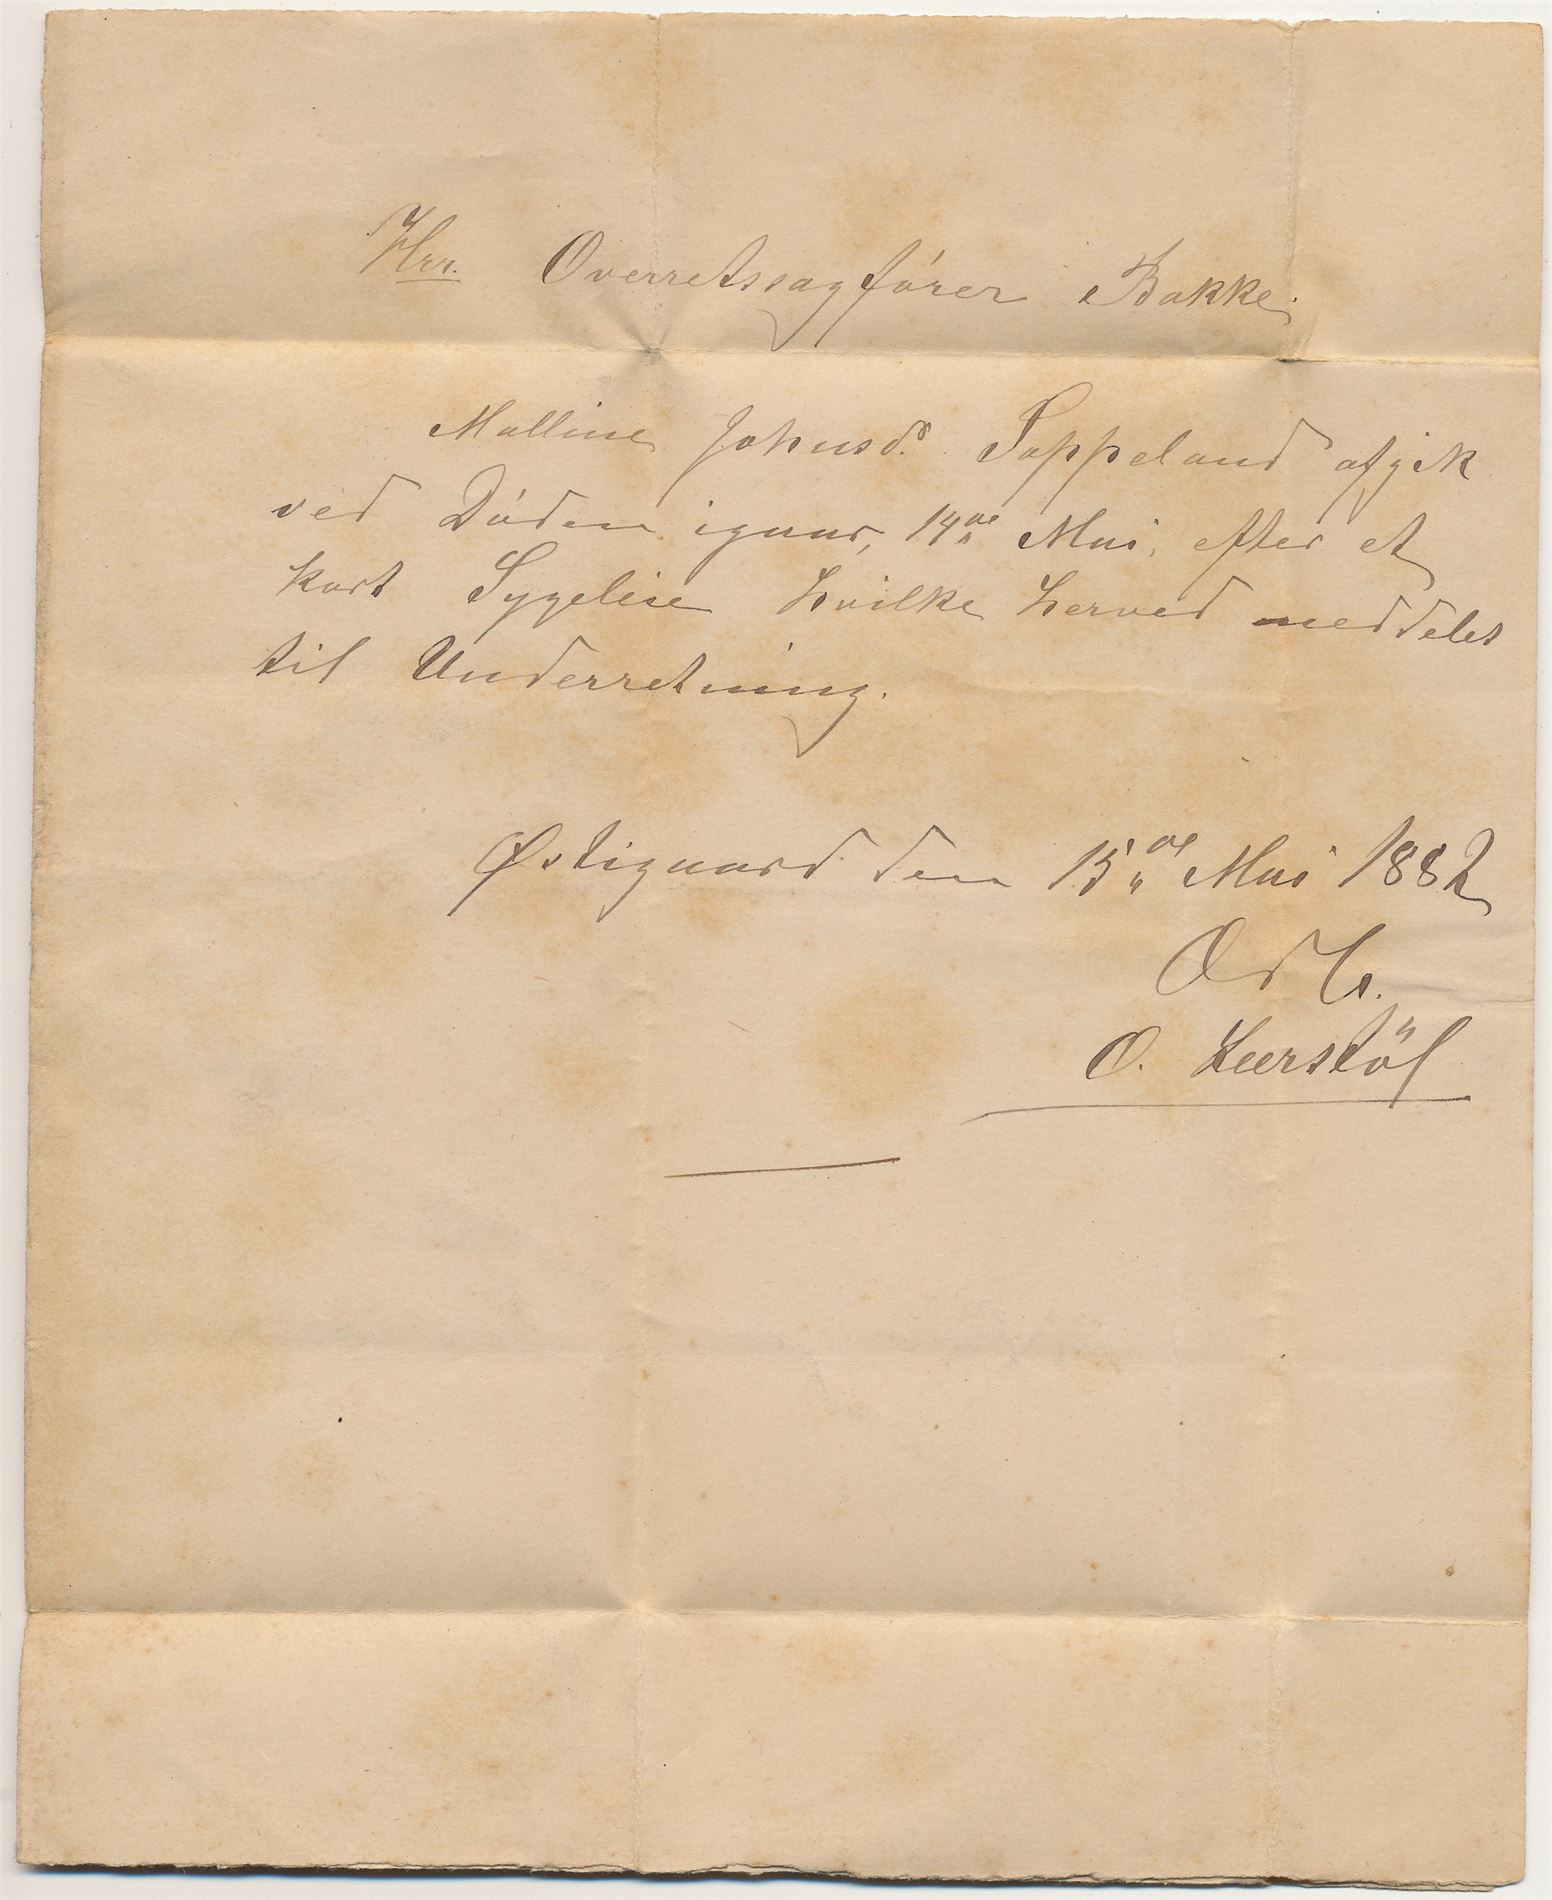 Hrr. Overretssagfører Bakke.
Malline Johnsdr. Soppeland afgik
ved Døden igaar, 14de Mai, efter et
kort Sygeleie hvilke herved meddeles
til Underretning.
Østigaard den 15de Mai 1882
Ærb.
O. Leerstöl